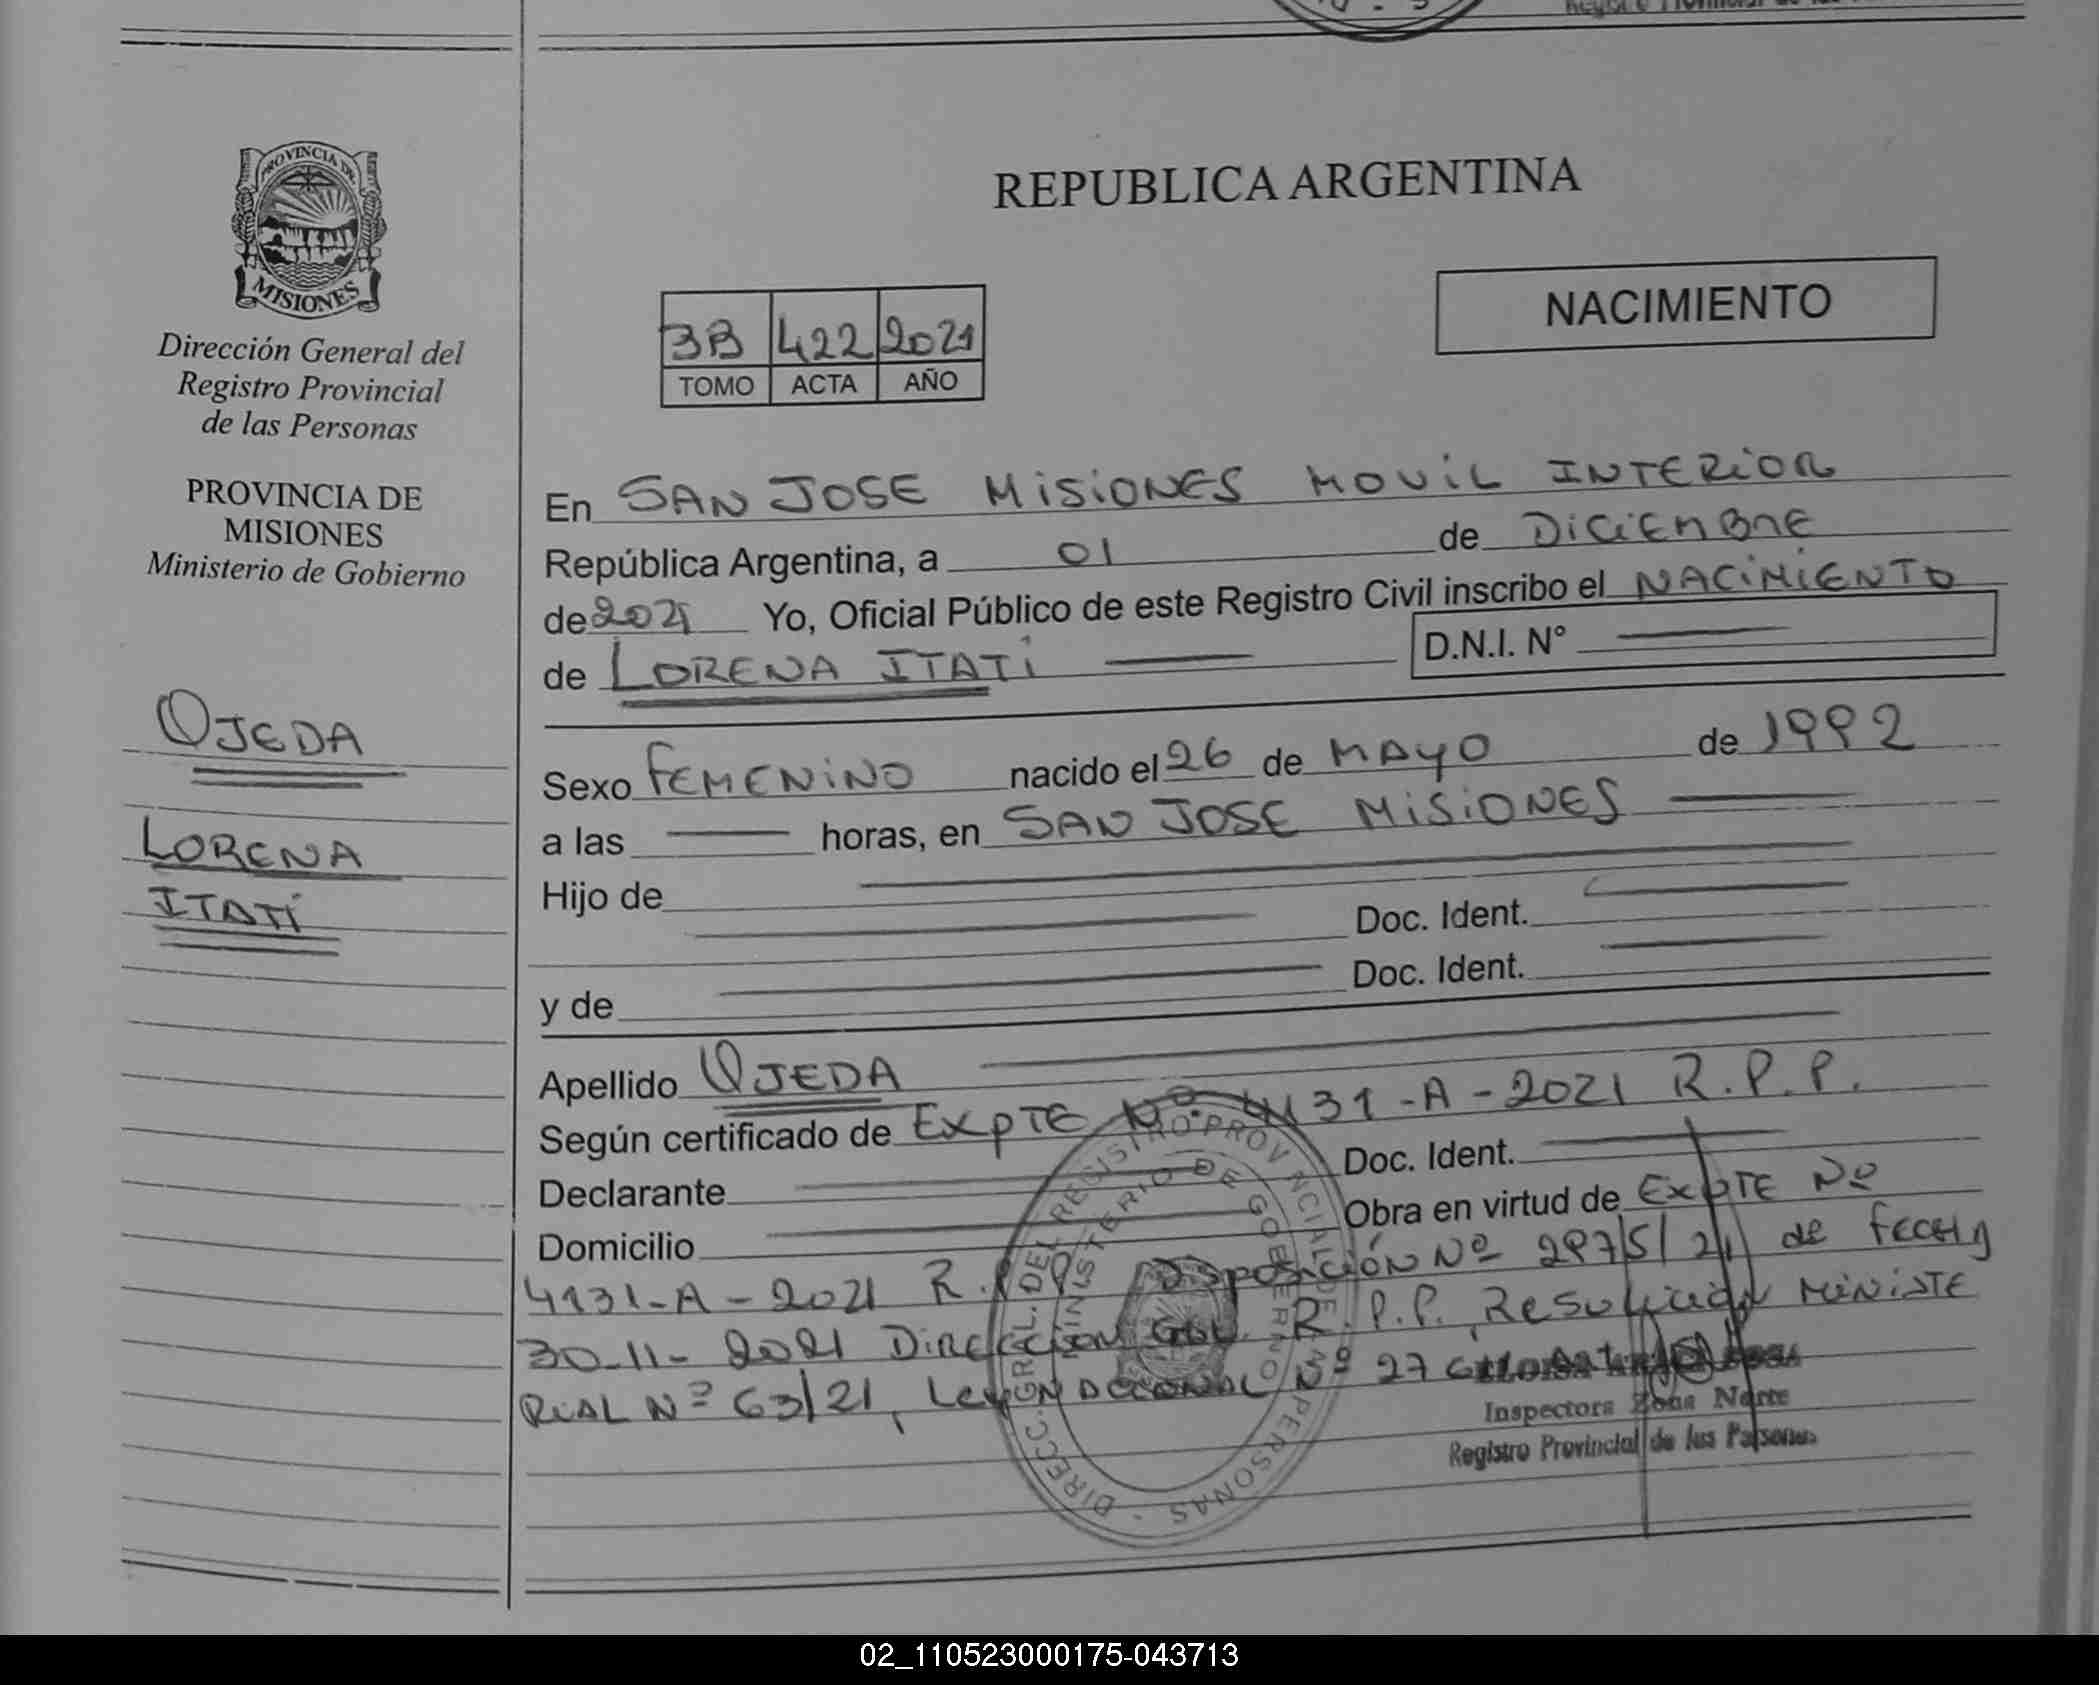 PROVINCIA DE
MISIONES
Dirección General del
Registro Provincial
de las Personas
PROVINCIA DE
MISIONES
Ministerio de Gobierno
OJEDA
LORENA
ITATÍ
REPUBLICA ARGENTINA
3B 422 2021
TOMO ACTA AÑO
NACIMIENTO
En SAN JOSE MISIONES MOVIL INTERIOR
República Argentina, a 01 de DICIEMBRE
de 2021 Yo, Oficial Público de este Registro Civil inscribo el NACIMIENTO
de LORENA ITATÍ D.N.I. N°
Sexo FEMENINO nacido el 26 de MAYO de 1992
a las horas, en SAN JOSE MISIONES
Hijo de
Doc. Ident.
y de Doc. Ident.
Apellido OJEDA
Según certificado de EXPTE Nº 4131-A-2021 R.P.P.
Declarante Doc. Ident.
Domicilio Obra en virtud de EXPTE Nº
4131-A-2021 R.P.P. DISPOSICIÓN Nº 2975/21 de FECHA
30-11-2021 DIRECCION GRL. R.P.P., RESOLUCION MINISTE
RIAL Nº 63/21, LEY NACIONAL Nº 27
Inspectora Zona Norte
Registro Provincial de las Personas
DIRECC. GRL. DEL REGISTRO PROVINCIAL DE LAS PERSONAS
MINISTERIO DE GOBIERNO
02_110523000175-043713